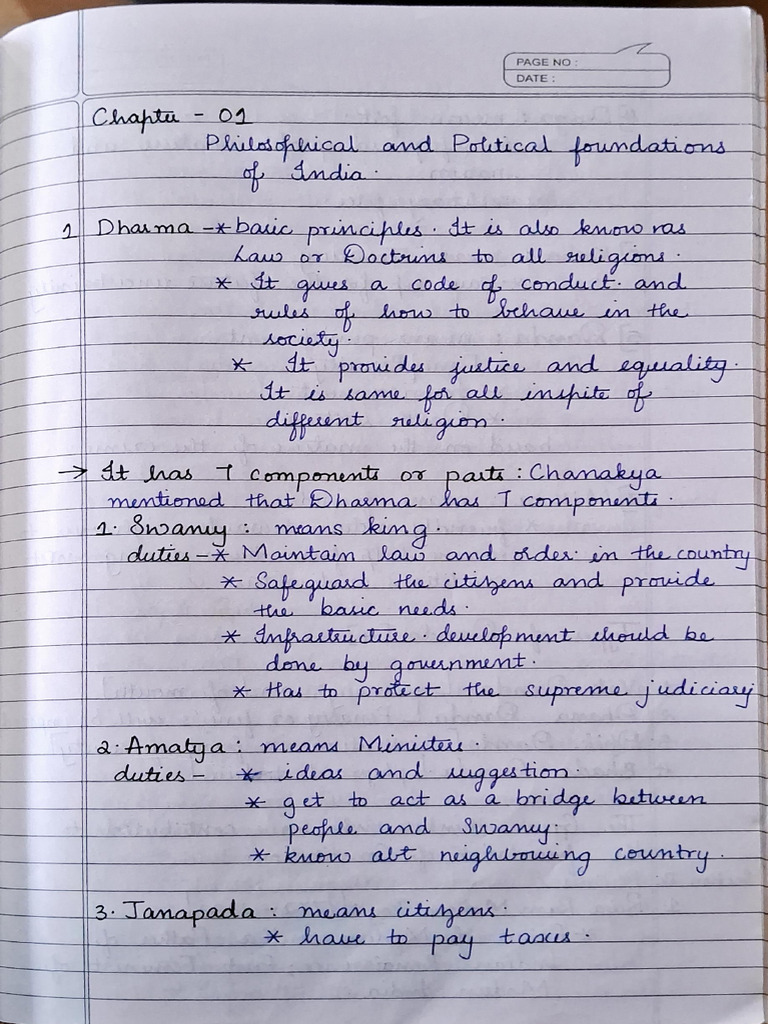 PAGE NO :
DATE :
Chapter - 01
Philosophical and Political foundations
of India.
1 Dharma - * basic principles. It is also know ras
Law or Doctrins to all religions.
* It gives a code of conduct. and
rules of how to behave in the
society.
* It provides justice and equality.
It is same for all inspite of
different religion.
→ It has 7 components or parts : Chanakya
mentioned that Dharma has 7 components.
1. Swamy : means king.
duties - * Maintain law and order. in the country
* Safeguard the citizens and provide
the basic needs.
* Infrastructure. development should be
done by government.
* Has to protect the supreme judiciary
2. Amatya : means Ministers.
duties - * ideas and suggestion.
* get to act as a bridge between
people and Swamy.
* know abt neighbouring country.
3. Janapada : means citizens.
* have to pay taxes.